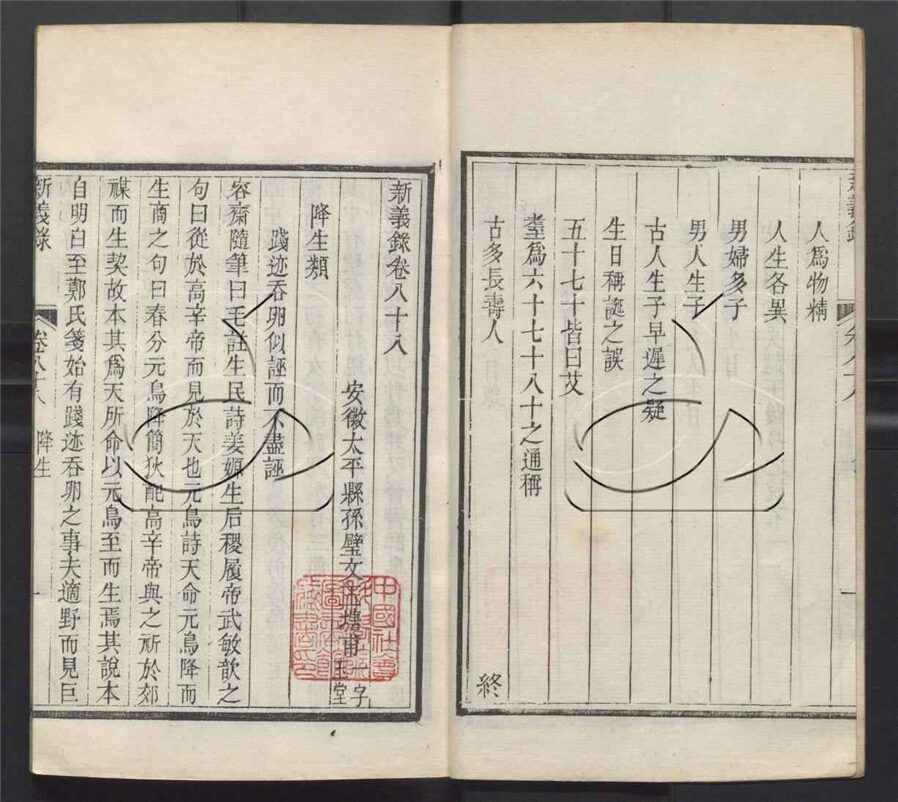 人爲物精
人生各異
男婦多子
男人生子
古人生子早遲之疑
生日稱誕之誤
五十七十皆曰艾
耋爲六十七十八十之通稱
古多長壽人
終
新義錄卷八十八
安徽太平縣孫璧文玉塘甫一字玉堂
降生類
踐迹吞卵似誣而不盡誣
容齋隨筆曰毛註生民詩姜嫄生后稷履帝武敏歆之
句曰從於高辛帝而見於天也元鳥詩天命元鳥降而
生商之句曰春分元鳥降簡狄配高辛帝與之祈於郊
禖而生契故本其爲天所命以元鳥至而生焉其說本
自明白至鄭氏箋始有踐迹吞卵之事夫適野而見巨
新義錄 卷八十八 降生 一